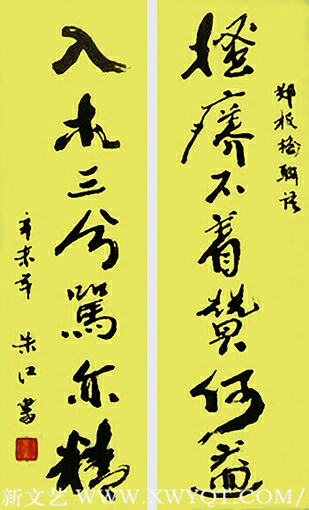 郑板桥聯语
搔癢不着贊何益
入木三分駡亦精
辛未年 朱江書
新文艺 WWW.XWYQT.COM/